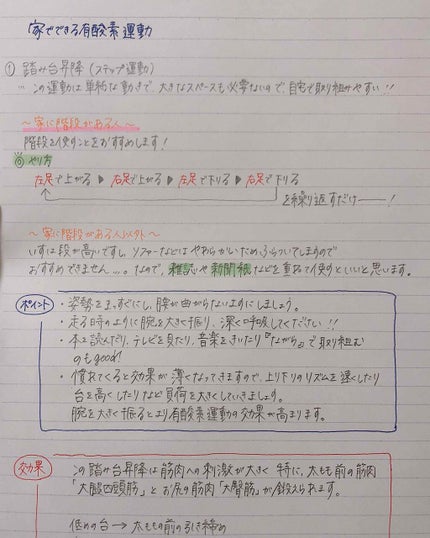 家でできる有酸素運動
① 踏み台昇降 (ステップ運動)
… この運動は単純な動きで、大きなスペースも必要ないので、自宅で取り組みやすい!!
～家に階段がある人～
階段を使うことをおすすめします!
◎やり方
左足で上がる ▶ 右足で上がる ▶ 左足で下りる ▶ 右足で下りる
を繰り返すだけ――!
～家に階段がある人以外～
いすは段が高いですし、ソファーなどはやわらかいためふらついてしまうので
おすすめできません…。なので、雑誌や新聞紙などを重ねて使うといいと思います。
ポイント
・姿勢をまっすぐにし、腰が曲がらないようにしましょう。
・走る時のように腕を大きく振り、深く呼吸してください!!
・本を読んだり、テレビを見たり、音楽をきいたり『ながら』で取り組む
のもgood!
・慣れてくると効果が薄くなってきますので、上り下りのリズムを速くしたり
台を高くしたりなど負荷を大きくしていきましょう。
腕を大きく振るとより有酸素運動の効果が高まります。
効果
この踏み台昇降は筋肉への刺激が大きく 特に、太もも前の筋肉
「大腿四頭筋」とお尻の筋肉「大臀筋」が鍛えられます。
低めの台→太ももの前の引き締め